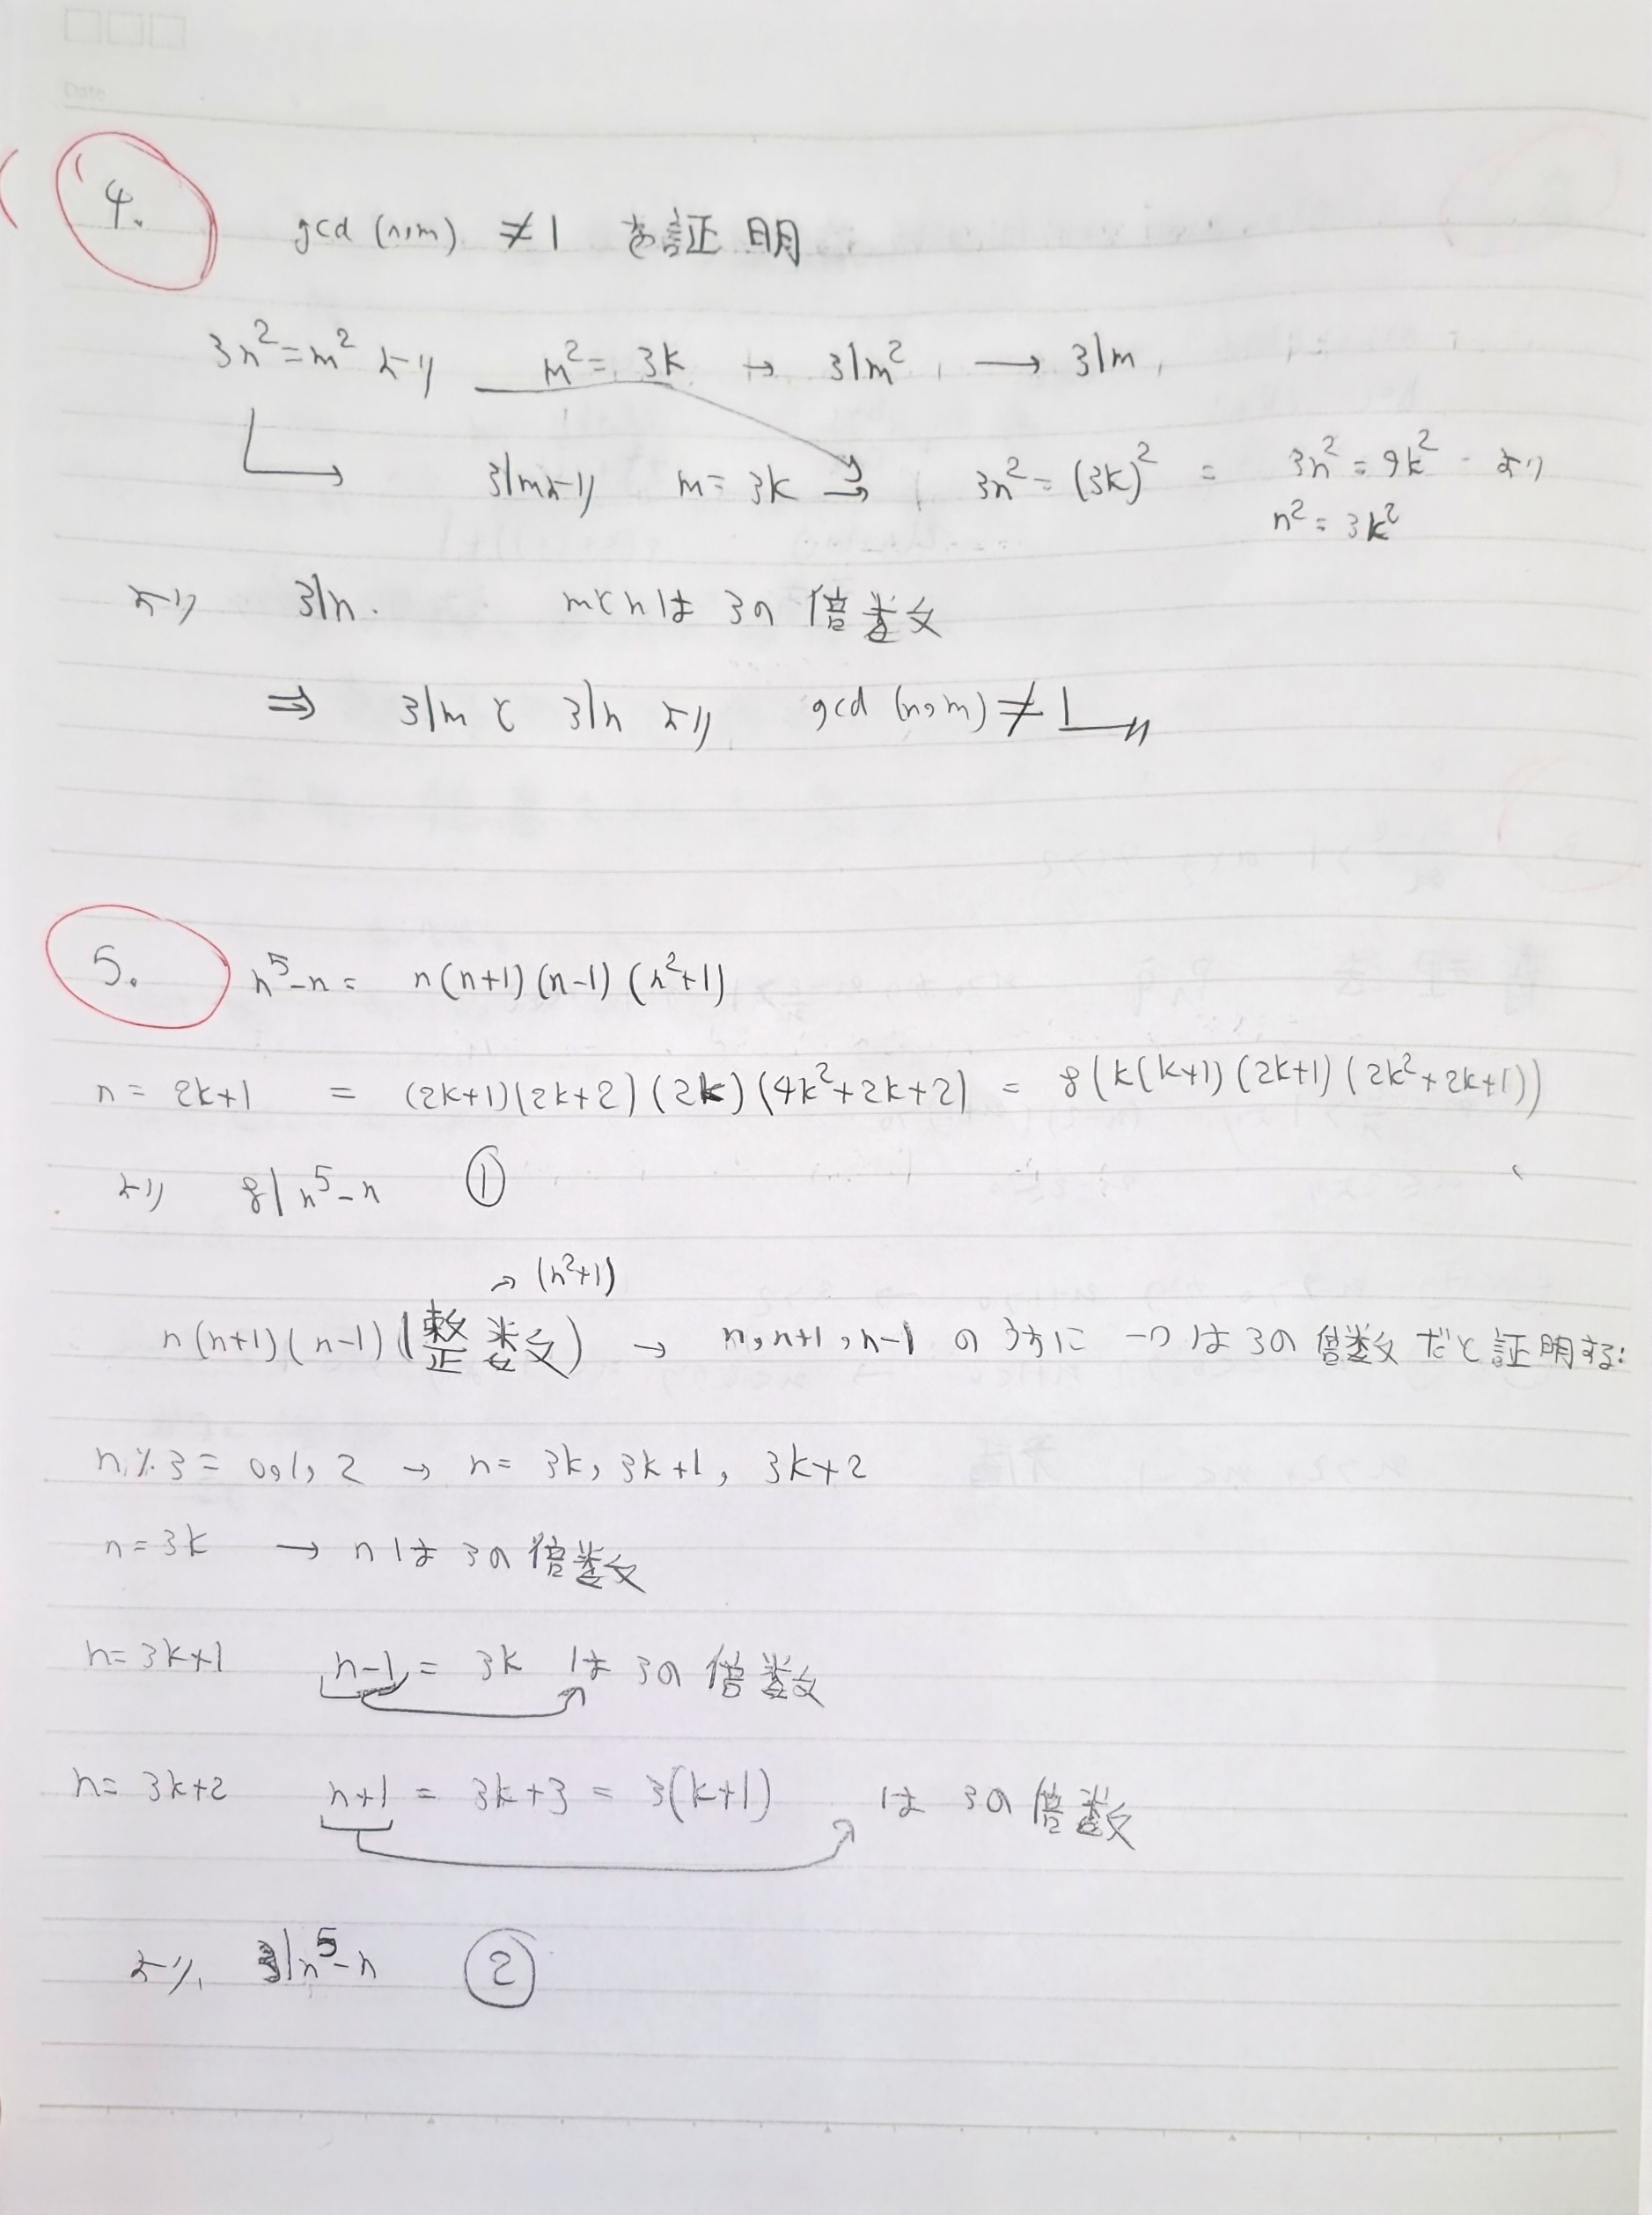 Date
4. gcd (n,m) ≠1 を証明
3n²=m² より m²= 3k → 3|m², → 3|m,
3|mより m= 3k → 3n²= (3k)² = 3n²=9k² より
n²=3k²
より 3|n. mとnは 3の倍数
⇒ 3|m と 3|n より gcd (n,m) ≠1
5. n⁵-n= n(n+1)(n-1)(n²+1)
n= 2k+1 = (2k+1)(2k+2)(2k)(4k²+2k+2) = 8(k(k+1)(2k+1)(2k²+2k+1))
より 8|n⁵-n ①
→ (n²+1)
n(n+1)(n-1)(整数) → n,n+1,n-1 の うちに 一つは 3の倍数だと証明する:
n % 3= 0,1,2 → n= 3k, 3k+1, 3k+2
n=3k → nは 3の倍数
n=3k+1 n-1= 3k は 3の倍数
n= 3k+2 n+1 = 3k+3 = 3(k+1) は 3の倍数
より, 3|n⁵-n ②